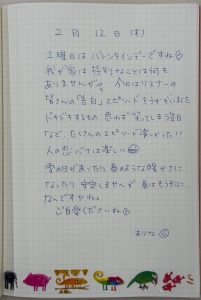 2月12日(木)
土曜日はバレンタインデーですね
我が家は特別なことは何も
ありませんが。今日はリスナーの
皆さんの「告白」エピソードをうかがいました
ドキドキするもの 思わず笑ってしまう告白
など、たくさんのエピソード楽しかったい
人の恋バナは楽しい
雪の日があったり 春のような暖かさに
なったり 安定しませんが 春はもうすぐ
なんですかね。
ご自愛くださいね
まりな